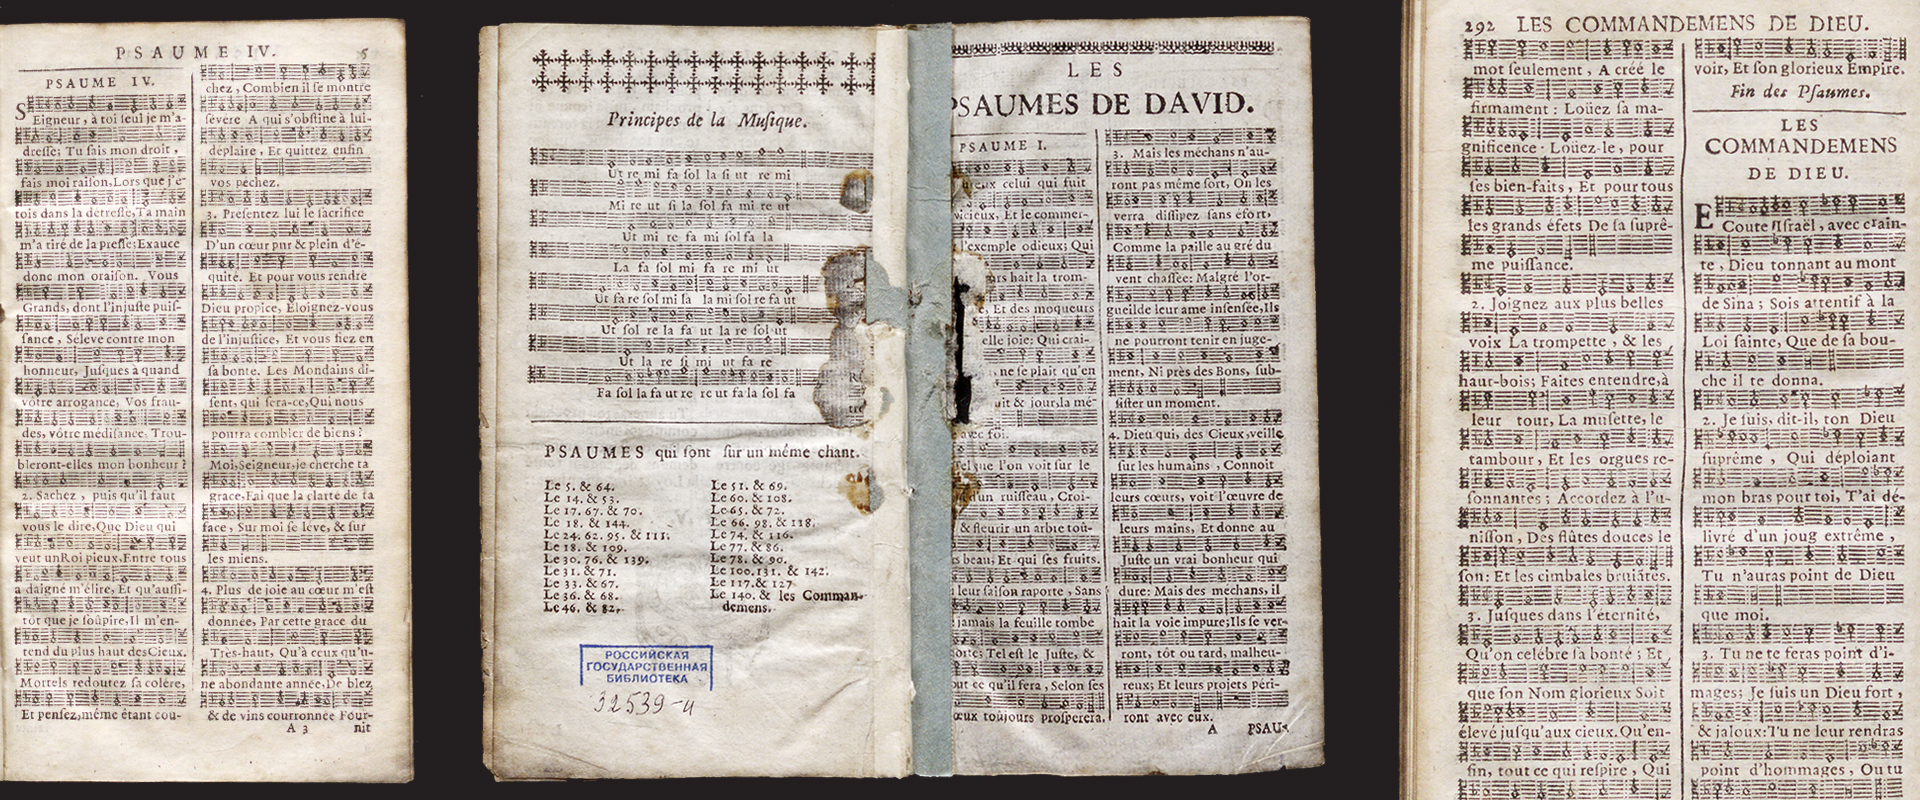 PSAUME IV. 5
PSAUME IV.
SEigneur, à toi seul je m'a-
dresse; Tu sais mon droit,
fais moi raison, Lors que j'é-
tois dans la détresse, Ta main
m'a tiré de la presse; Exauce
donc mon oraison. Vous
Grands, dont l'injuste puis-
sance, S'éleve contre mon
honneur, Jusques à quand
vôtre arrogance, Vos frau-
des, vôtre médisance, Trou-
bleront-elles mon bonheur?
2. Sachez, puis qu'il faut
vous le dire, Que Dieu qui
veut un Roi pieux, Entre tous
a daigné m'élire, Et qu'aussi-
tôt que je soûpire, Il m'en-
tend du plus haut des Cieux.
Mortels redoutez sa colére,
Et pensez, même étant cou-
chez, Combien il se montre
sévére A qui s'obstine à lui-
déplaire, Et quittez enfin
vos péchez.
3. Présentez lui le sacrifice
D'un cœur pur & plein d'é-
quité. Et pour vous rendre
Dieu propice, Eloignez-vous
de l'injustice, Et vous fiez en
sa bonté. Les Mondains di-
sent, qui sera-ce, Qui nous
pourra combler de biens?
Moi, Seigneur, je cherche ta
grace, Fai que la clarté de ta
face, Sur moi se léve, & sur
les miens.
4. Plus de joie au cœur m'est
donnée, Par cette grace du
Très-haut, Qu'à ceux qu'u-
ne abondante année, De blez
& de vins courronnée Four-
A 3 nit
Principes de la Musique.
Ut re mi fa sol la si ut re mi
Mi re ut si la sol fa mi re ut
Ut mi re fa mi sol fa la
La fa sol mi fa re mi ut
Ut fa re sol mi la la mi sol re fa ut
Ut sol re la fa ut la re sol ut
Ut la re si mi ut fa re
Fa sol la fa ut re re ut fa la sol fa
PSAUMES qui sont sur un même chant.
Le 5. & 64.
Le 14. & 53.
Le 17. 67. & 70.
Le 18. & 144.
Le 24. 62. 95. & 111.
Le 18. & 109.
Le 30. 76. & 139.
Le 31. & 71.
Le 33. & 67.
Le 36. & 68.
Le 46. & 82.
Le 51. & 69.
Le 60. & 108.
Le 65. & 72.
Le 66. 98. & 118.
Le 74. & 116.
Le 77. & 86.
Le 78. & 90.
Le 100. 131. & 142.
Le 117. & 127
Le 140. & les Comman-
demens.
РОССИЙСКАЯ
ГОСУДАРСТВЕННАЯ
БИБЛИОТЕКА
32539-и
LES
PSAUMES DE DAVID.
PSAUME I.
celui qui suit
vicieux, Et le commer-
l'exemple odieux; Qui
hait la trom-
Et des moqueurs
elle joie: Qui crai-
ne se plait qu'en
& jour, la mé-
avec foi.
que l'on voit sur le
d'un ruisseau, Croi-
& fleurir un arbre toû-
beau; Et qui ses fruits,
leur saison raporte, Sans
jamais la feuille tombe
Tel est le Juste, &
ce qu'il fera, Selon ses
toûjours prosperera.
3. Mais les méchans n'au-
ront pas même sort, On les
verra dissipez sans éfort,
Comme la paille au gré du
vent chassée: Malgré l'or-
gueil de leur ame insensée, Ils
ne pourront tenir en juge-
ment, Ni près des Bons, sub-
sister un moment.
4. Dieu qui, des Cieux, veille
sur les humains, Connoît
leurs cœurs, voit l'œuvre de
leurs mains, Et donne au
Juste un vrai bonheur qui
dure: Mais des mechans, il
hait la voie impure; Ils se ver-
ront, tôt ou tard, malheu-
reux; Et leurs projets péri-
ront avec eux.
A PSAU-
292 LES COMMANDEMENS DE DIEU.
mot seulement, A créé le
firmament: Loüez sa ma-
gnificence: Loüez-le, pour
ses bien-faits, Et pour tous
les grands éfets De sa suprê-
me puissance.
2. Joignez aux plus belles
voix La trompette, & les
haut-bois; Faites entendre, à
leur tour, La musette, le
tambour, Et les orgues re-
sonnantes; Accordez à l'u-
nisson, Des flûtes douces le
son: Et les cimbales bruiantes.
3. Jusques dans l'éternité,
Qu'on celébre sa bonté; Et
que son Nom glorieux Soit
élevé jusqu'aux cieux. Qu'en-
fin, tout ce qui respire, Qui
voir, Et son glorieux Empire.
Fin des Psaumes.
LES
COMMANDEMENS
DE DIEU.
ECoute Israël, avec crain-
te, Dieu tonnant au mont
de Sina; Sois attentif à la
Loi sainte, Que de sa bou-
che il te donna.
2. Je suis, dit-il, ton Dieu
suprême, Qui déploiant
mon bras pour toi, T'ai dé-
livré d'un joug extrême,
Tu n'auras point de Dieu
que moi.
3. Tu ne te feras point d'i-
mages; Je suis un Dieu fort,
& jaloux: Tu ne leur rendras
point d'hommages, Ou tu